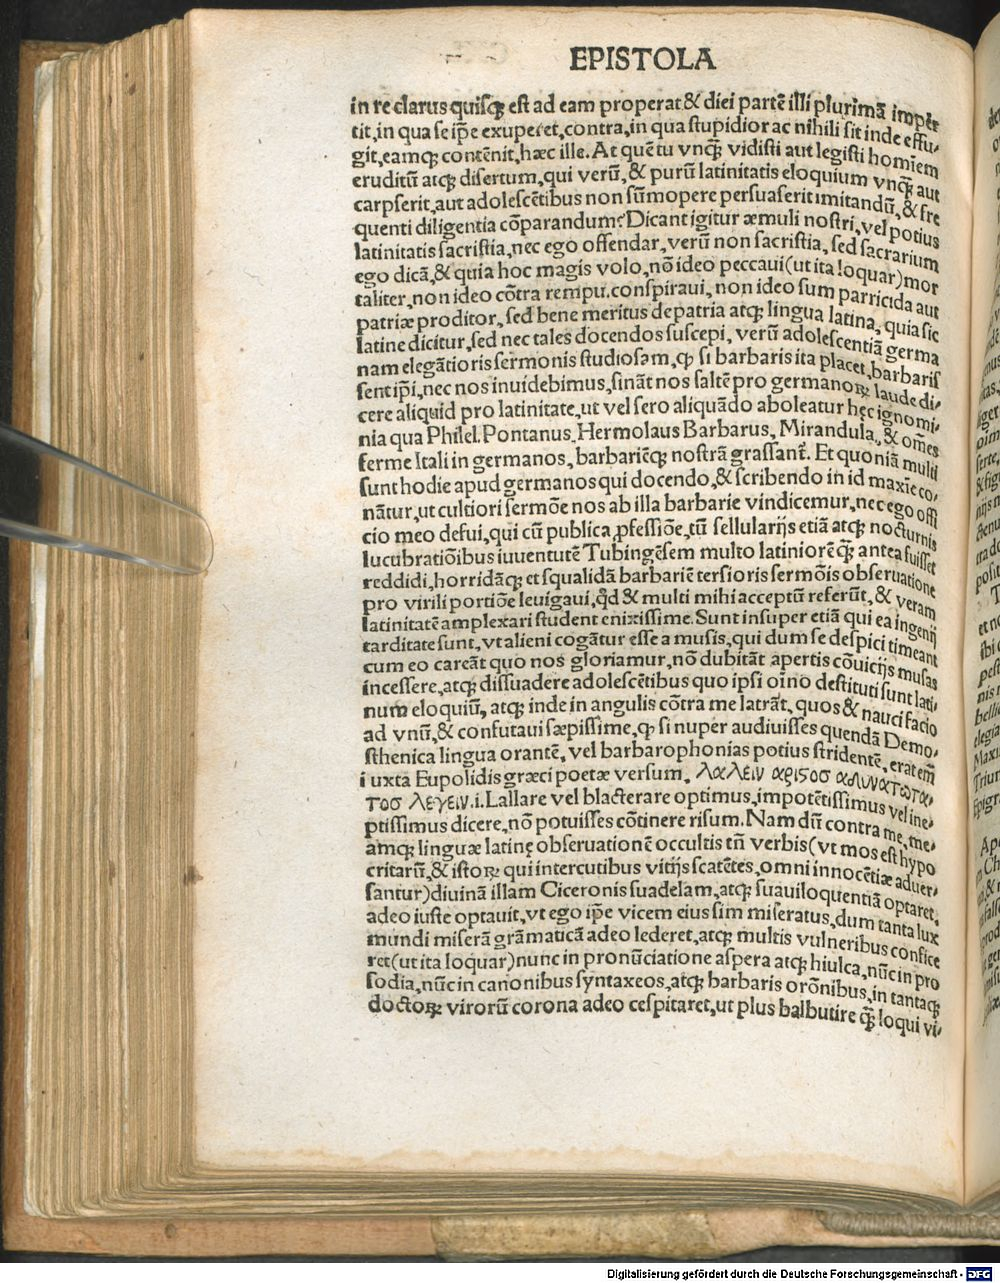 EPISTOLA
in re clarus quisqꝫ est ad eam properat & diei partē illi plurimā impēr
tit, in qua se ip̄e exuperet, contra, in qua stupidior ac nihili sit inde effu-
git, eamqꝫ contēnit, hæc ille. At quē tu vnqꝫ̄ vidisti aut legisti homīem
eruditū atqꝫ disertum, qui verū, & purū latinitatis eloquium vnqꝫ̄ aut
carpserit, aut adolescētibus non sūmopere persuaserit imitandū, & fre
quenti diligentia cōparandum? Dicant igitur æmuli nostri, vel potius
latinitatis sacristia, nec ego offendar, verū non sacristia, sed sacrarium
ego dicā, & quia hoc magis volo, nō ideo peccaui (ut ita loquar) mor
taliter, non ideo cōtra rempu. conspiraui, non ideo sum parricida aut
patriæ proditor, sed bene meritus de patria atqꝫ lingua latina, quia sic
latine dicitur, sed nec tales docendos suscepi, verū adolescentiā germa
nam elegātioris sermonis studiosam, ꝙ si barbaris ita placet, barbaris
sent ip̄i, nec nos inuidebimus, sināt nos saltē pro germanoꝝ laude di-
cere aliquid pro latinitate, ut vel sero aliquādo aboleatur hęc ignomi-
nia qua Philel. Pontanus, Hermolaus Barbarus, Mirandula, & om̄es
ferme Itali in germanos, barbariēqꝫ nostrā grassant̄. Et quoniā multi
sunt hodie apud germanos qui docendo, & scribendo in id maxīe co-
nātur, ut cultiori sermōe nos ab illa barbarie vindicemur, nec ego offi
cio meo defui, qui cū publica ꝓfessiōe, tū sellularijs etiā atqꝫ nocturnis
lucubratiōibus iuuentutē Tubingēsem multo latiniorē qꝫ̄ antea fuisset
reddidi, horridāqꝫ et squalidā barbariē tersioris sermōis obseruatione
pro virili portiōe leuigaui, qd̄ & multi mihi acceptū referūt, & veram
latinitatē amplexari student enixissime. Sunt insuper etiā qui ea ingenij
tarditate sunt, vt alieni cogātur esse a musis, qui dum se despici timeant
cum eo careāt quo nos gloriamur, nō dubitāt apertis cōuicijs musas
incessere, atqꝫ dissuadere adolescētibus quo ipsi oīno destituti sunt lati-
num eloquiū, atqꝫ inde in angulis cōtra me latrāt, quos & nauci facio
ad vnū, & confutaui sæpissime, ꝙ si nuper audiuisses quendā Demo-
sthenica lingua orantē, vel barbarophonias potius stridentē, erat em̄
iuxta Eupolidis græci poetæ versum, λαλειν αριστοσ αδυνατωτα-
τοσ λεγειν. i. Lallare vel blacterare optimus, impotētissimus vel ine-
ptissimus dicere, nō potuisses cōtinere risum. Nam dū contra me, me-
amqꝫ linguæ latinę obseruationē occultis tn̄ verbis (vt mos est hypo
critarū, & istoꝝ qui intercutibus vitijs scatētes, omni innocētiæ aduer-
santur) diuinā illam Ciceronis suadelam, atqꝫ suauiloquentiā optaret,
adeo iuste optauit, vt ego ip̄e vicem eius sim miseratus, dum tanta lux
mundi miserā grāmaticā adeo lederet, atqꝫ multis vulneribus confice
ret (ut ita loquar) nunc in pronūciatione aspera atqꝫ hiulca, nūc in pro
sodia, nūc in canonibus syntaxeos, atqꝫ barbaris orōnibus, in tantaqꝫ
doctoꝝ virorū corona adeo cespitaret, ut plus balbutire qꝫ̄ loqui vi-
Digitalisierung gefördert durch die Deutsche Forschungsgemeinschaft - DFG